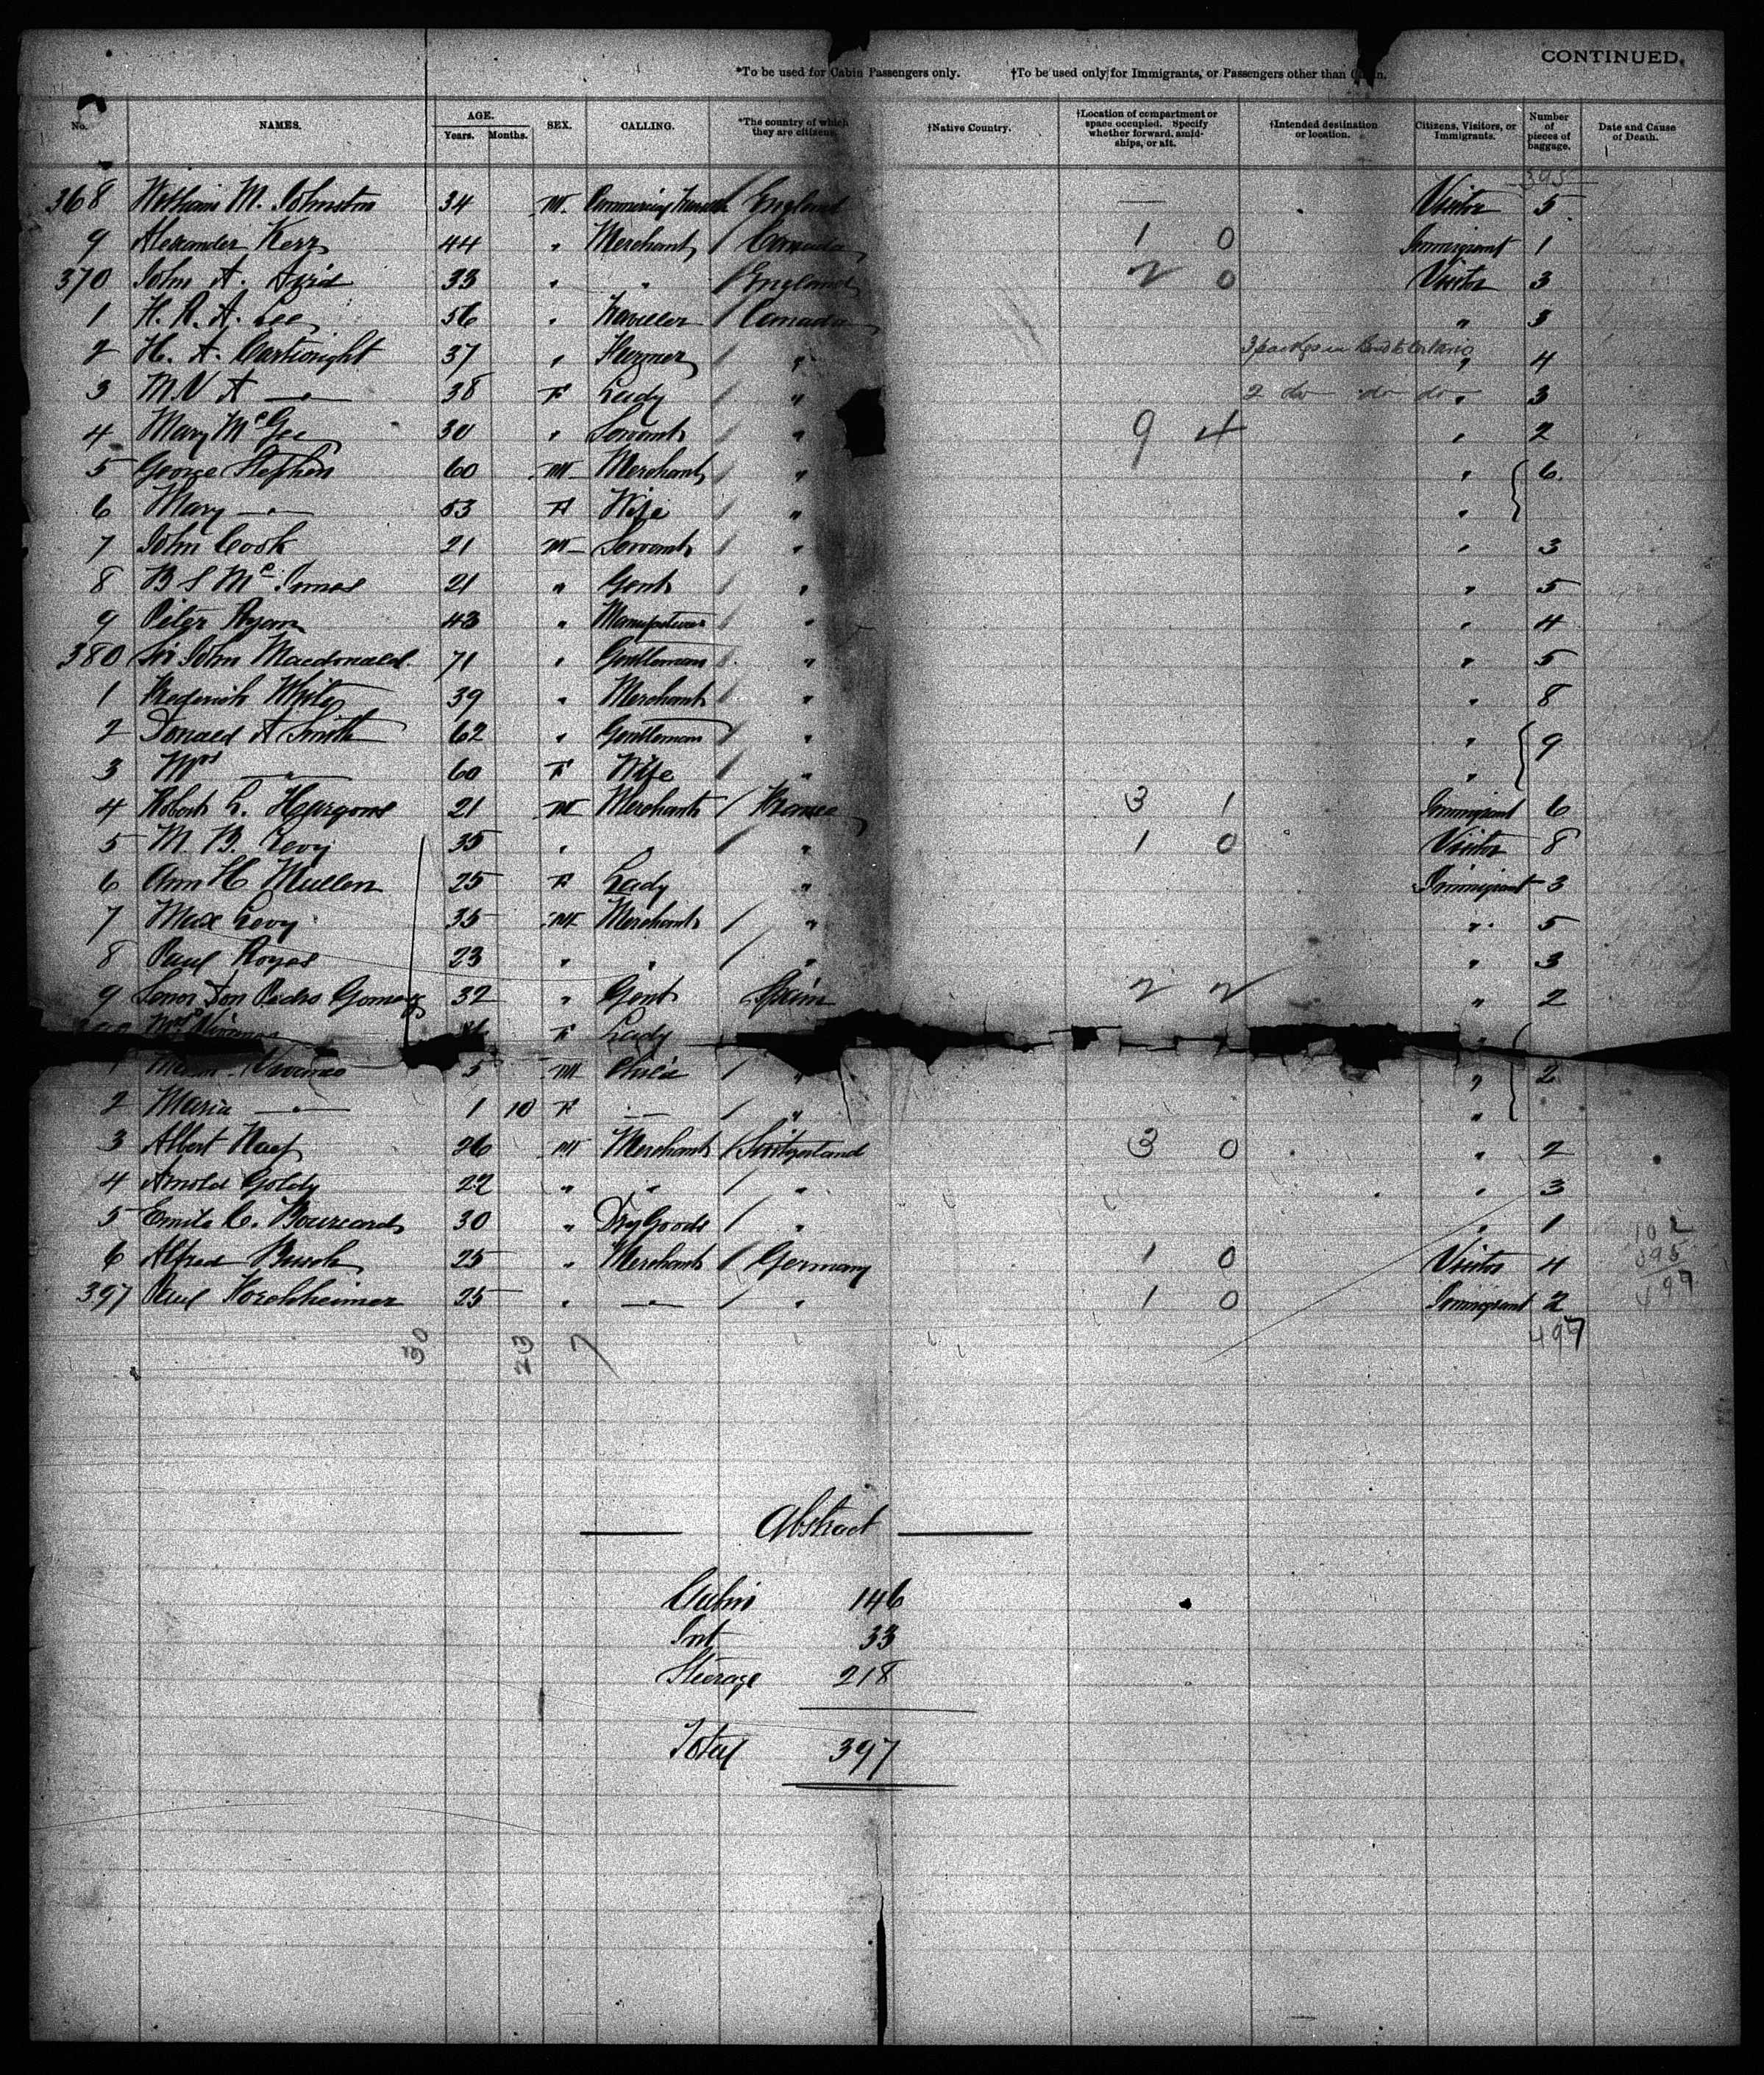 CONTINUED.
*To be used for Cabin Passengers only. †To be used only for Immigrants, or Passengers other than
No. NAMES. AGE. Years. Months. SEX. CALLING. *The country of which they are citizens. †Native Country. †Location of compartment or space occupied. Specify whether forward, amidships, or aft. †Intended destination or location. Citizens, Visitors, or Immigrants. Number of pieces of baggage. Date and Cause of Death.
395
368 William M. Johnston 34 M. England Visitor 5
9 Alexander Kerr 44 " Merchant Canada 1 0 Immigrant 1
370 John A. 33 " " England 2 0 Visitor 3
1 H. R. A. Lee 56 " Traveller Canada " 3
2 H. A. Cartwright 37 " Farmer " " 4
3 M. V. A —"— 38 F Lady " 2 do do do " 3
4 Mary McGee 30 " Servant " 9 4 " 2
5 George Stephen 60 M Merchant " " 6
6 Mary —"— 53 F Wife " "
7 John Cook 21 M Servant " " 3
8 B S McInnes 21 " Gent " " 5
9 Peter Ryan 43 " Manufacturer " " 4
380 Sir John Macdonald 71 " Gentleman " " 5
1 Frederick White 39 " Merchant " " 8
2 Donald A Smith 62 " Gentleman " " 9
3 Mrs —"— 60 F Wife " "
4 Robert L. 21 M Merchant France 3 1 Immigrant 6
5 M. B. Levy 35 " " " 1 0 Visitor 8
6 Ann H Mullen 25 F Lady " Immigrant 3
7 Max Levy 35 M Merchant " " 5
8 Paul 23 " " " " 3
9 Senor Don Pedro Gomez 32 " Gent Spain 2 2 " 2
Mrs F Lady "
1 5 M Child " " 2
2 Maria —"— 1 10 F — " "
3 Albert Naef 26 M Merchant Switzerland 3 0 " 2
4 Arnold Goldy 22 " " " " 3
5 Emile C. Bourcard 30 " Dry Goods " " 1
6 Alfred Busch 25 " Merchant Germany 1 0 Visitor 4
397 Paul Horchheimer 25 " —"— " 1 0 Immigrant 2
102
395
497
497
30 23 7
Abstract
Cabin 146
Int 33
Steerage 218
Total 397